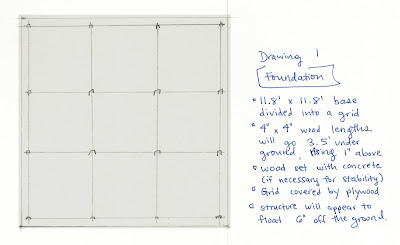 Drawing 1
Foundation
▫ 11.8' x 11.8' base
divided into a grid
▫ 4" x 4" wood lengths
will go 3.5' under
ground, rising 1" above
▫ wood set with concrete
(if necessary for stability)
▫ Grid covered by plywood
▫ structure will appear to
float 6" off the ground.